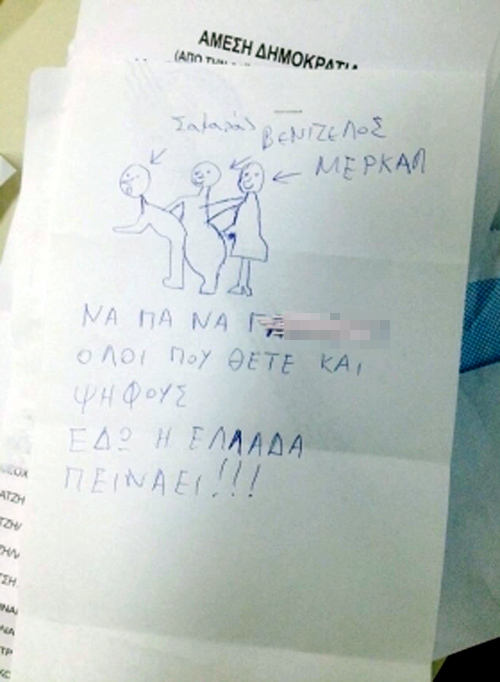 ΑΜΕΣΗ ΔΗΜΟΚΡΑΤΙΑ
(ΑΠΟ ΤΗΝ
Σαμαράς ΒΕΝΙΖΕΛΟΣ
ΜΕΡΚΑΛ
ΝΑ ΠΑ ΝΑ Γ
ΟΛΟΙ ΠΟΥ ΘΕΤΕ ΚΑΙ
ΨΗΦΟΥΣ
ΕΔΩ Η ΕΛΛΑΔΑ
ΠΕΙΝΑΕΙ!!!